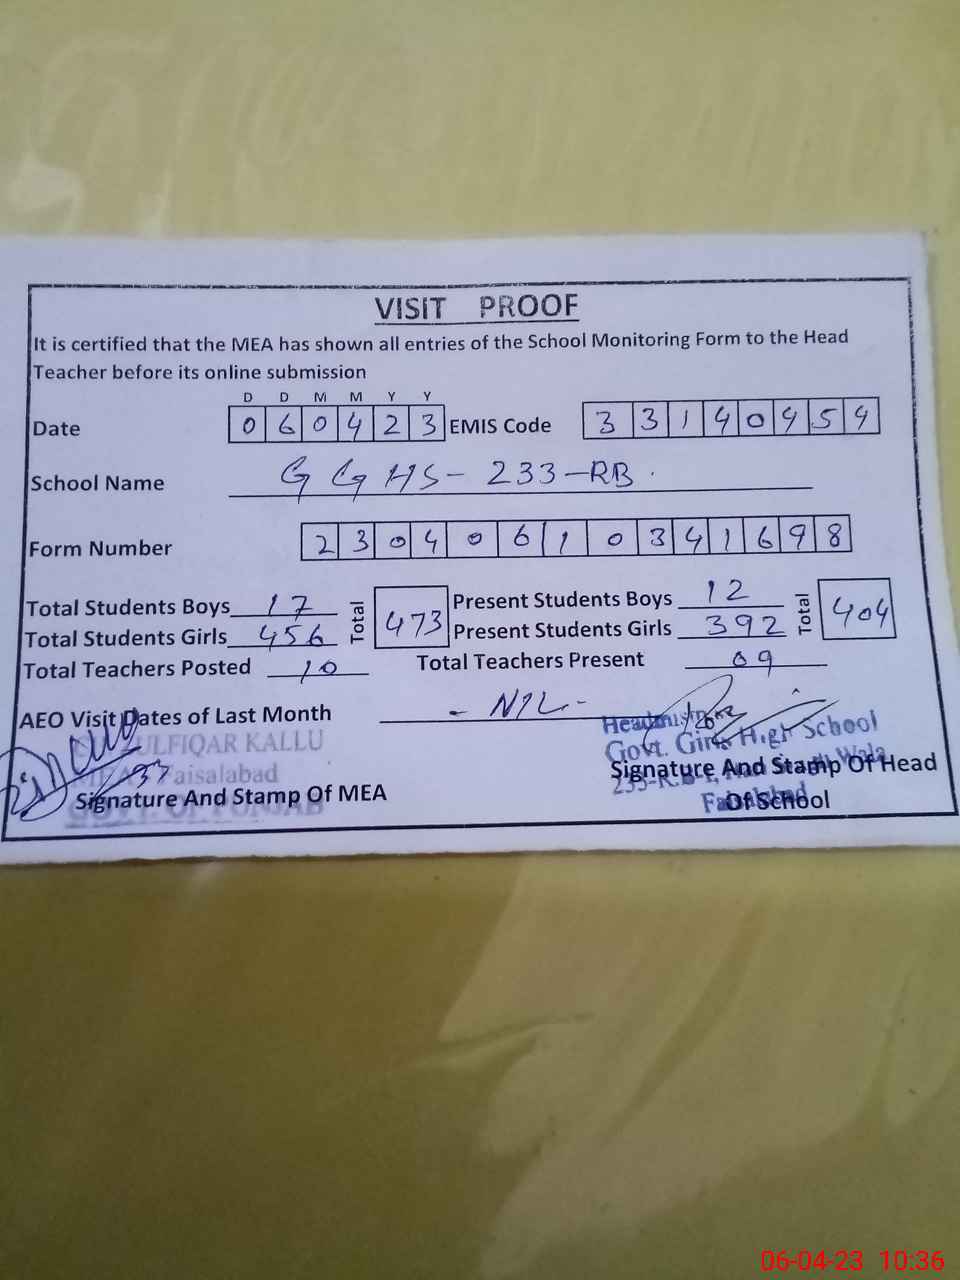 VISIT PROOF
It is certified that the MEA has shown all entries of the School Monitoring Form to the Head
Teacher before its online submission
D D M M Y Y
Date 0 6 0 4 2 3 EMIS Code 3 3 1 4 0 4 5 4
School Name G G HS - 233 - RB .
Form Number 2 3 0 4 0 6 1 0 3 4 1 6 9 8
Total Students Boys 17 Total 473 Present Students Boys 12 Total 404
Total Students Girls 456 Present Students Girls 392
Total Teachers Posted 10 Total Teachers Present 09
AEO Visit Dates of Last Month - NIL -
ZULFIQAR KALLU
MEA 37 Faisalabad
Signature And Stamp Of MEA
GOVT. OF PUNJAB
Headmistress
Govt. Girls High School
233-R.B Wala
Faisalabad
Signature And Stamp Of Head
Of School
06-04-23 10:36